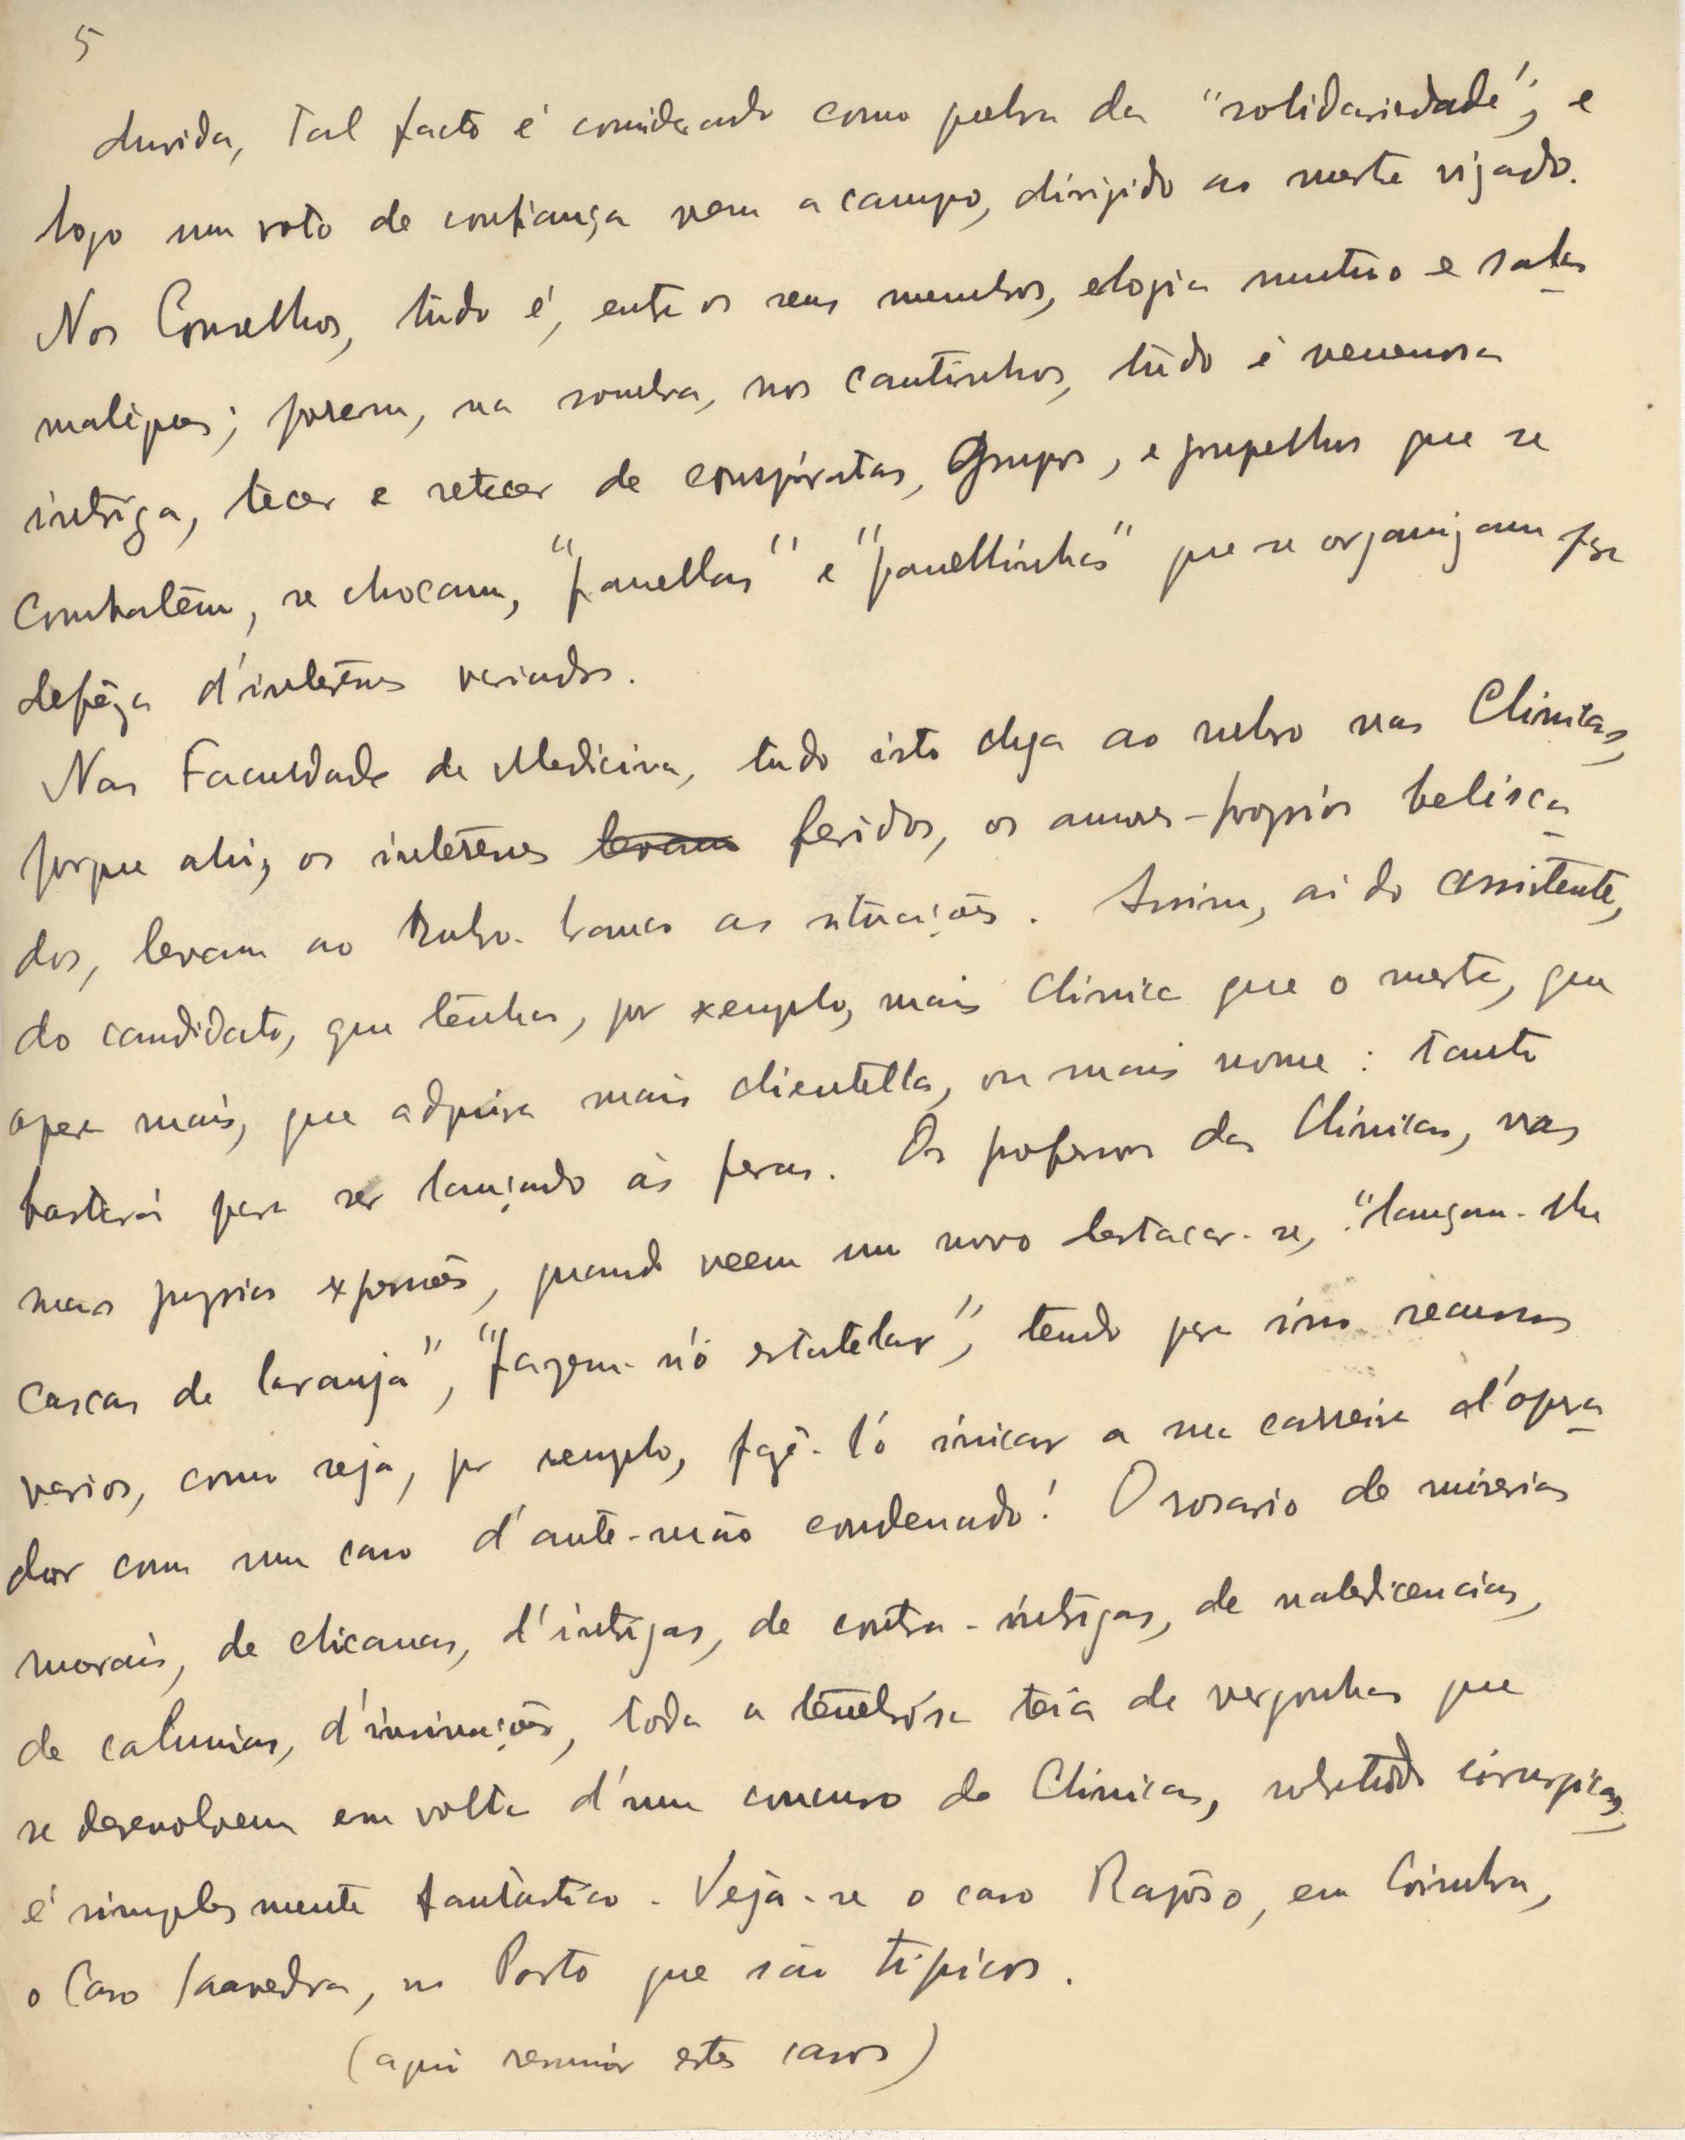 5
duvida, tal facto é considerado como quebra da "solidariedade", e
logo um voto de confiança vem a campo, dirigido ao mestre visado.
Nos Conselhos, tudo é, entre os seus membros, elogio mutuo e sala
maliques; porem, na sombra, nos cantinhos, tudo é venenosa
intriga, tecer e retecer de conspiratas, Grupos, e grupelhos que se
combatêm, se chocam, "panellas" e "panellinhas" que se organizam pra
defêza d'interêsses variados.
Nas Faculdades de Medicina, tudo isto chega ao rubro nas Clinicas,
porque ahi, os interêsses feridos, os amores-proprios belisca
dos, levam ao rubro-branco as situações. Assim, ai do assistente,
do candidato, que tênha, por exemplo, mais clinica que o mestre, que
opere mais, que adquira mais clientella, ou mais nome: tanto
bastará para ser lançado ás feras. Os professores das Clinicas, nas
suas proprias expressões, quando veem um novo destacar-se, "lançam-lhe
cascas de laranja", "fazem-n'ó estatelar", tendo para isso recursos
varios, como seja, por exemplo, fazê-l'ó iniciar a sua carreira d'opera
dor com um caso d'ante-mão condenado! O rosario de miserias
morais, de chicanas, d'intrigas, de contra-intrigas, de maledicencias,
de calunias, d'insinuações, toda a tênebrósa teia de vergonhas que
se desenvolvem em volta d'um concurso de Clinicas, sobretudo cirurgicas,
é simplesmente fantástico. Veja-se o caso Rapôso, em Coimbra,
o Caso Saavedra, no Porto que são tipicos.
(aqui resumir estes casos)